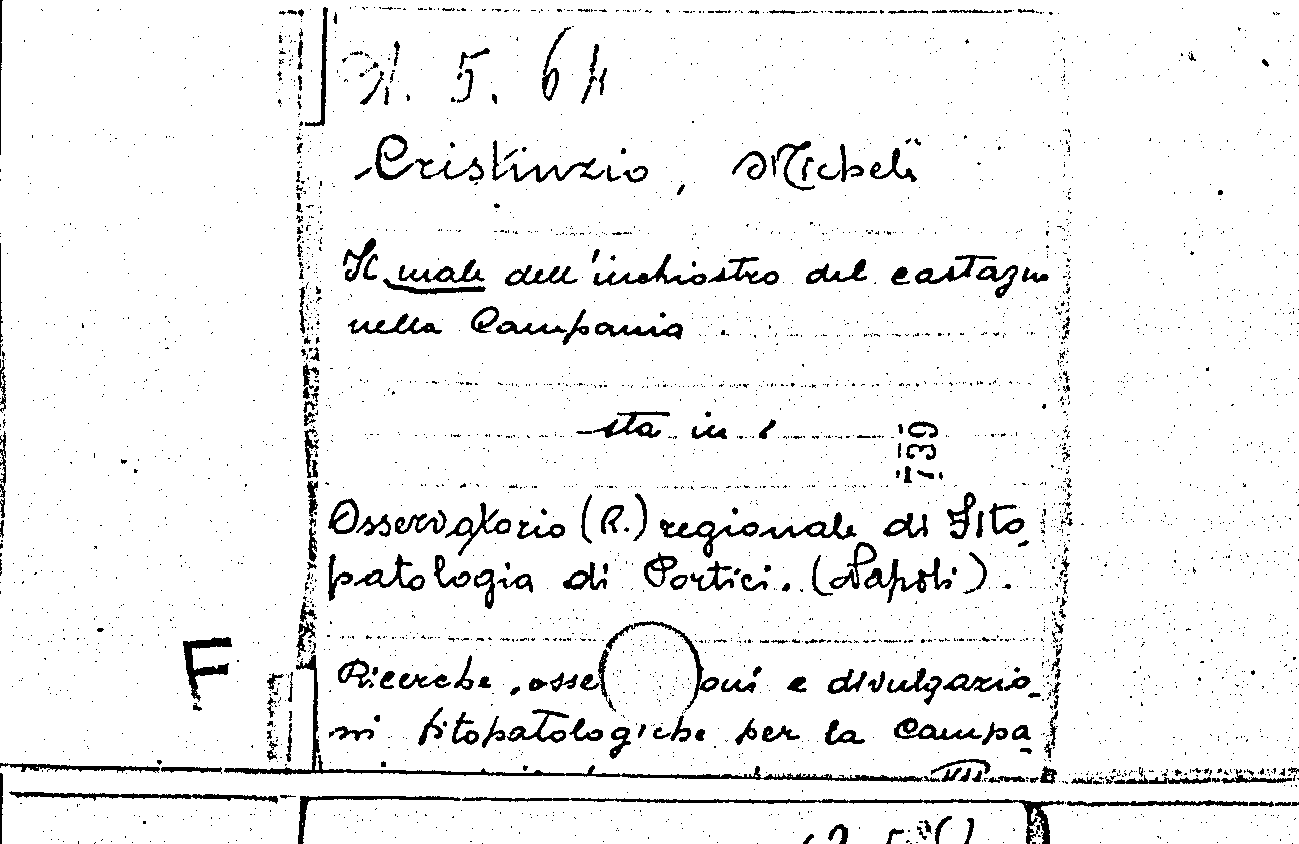 21. 5. 64
Cristinzio, Michele
Il male dell'inchiostro del castagno
nella Campania
sta in :
Osservatorio (R.) regionale di Fito
patologia di Portici. (Napoli).
F
Ricerche, osse oni e divulgazio
ni fitopatologiche per la Campa